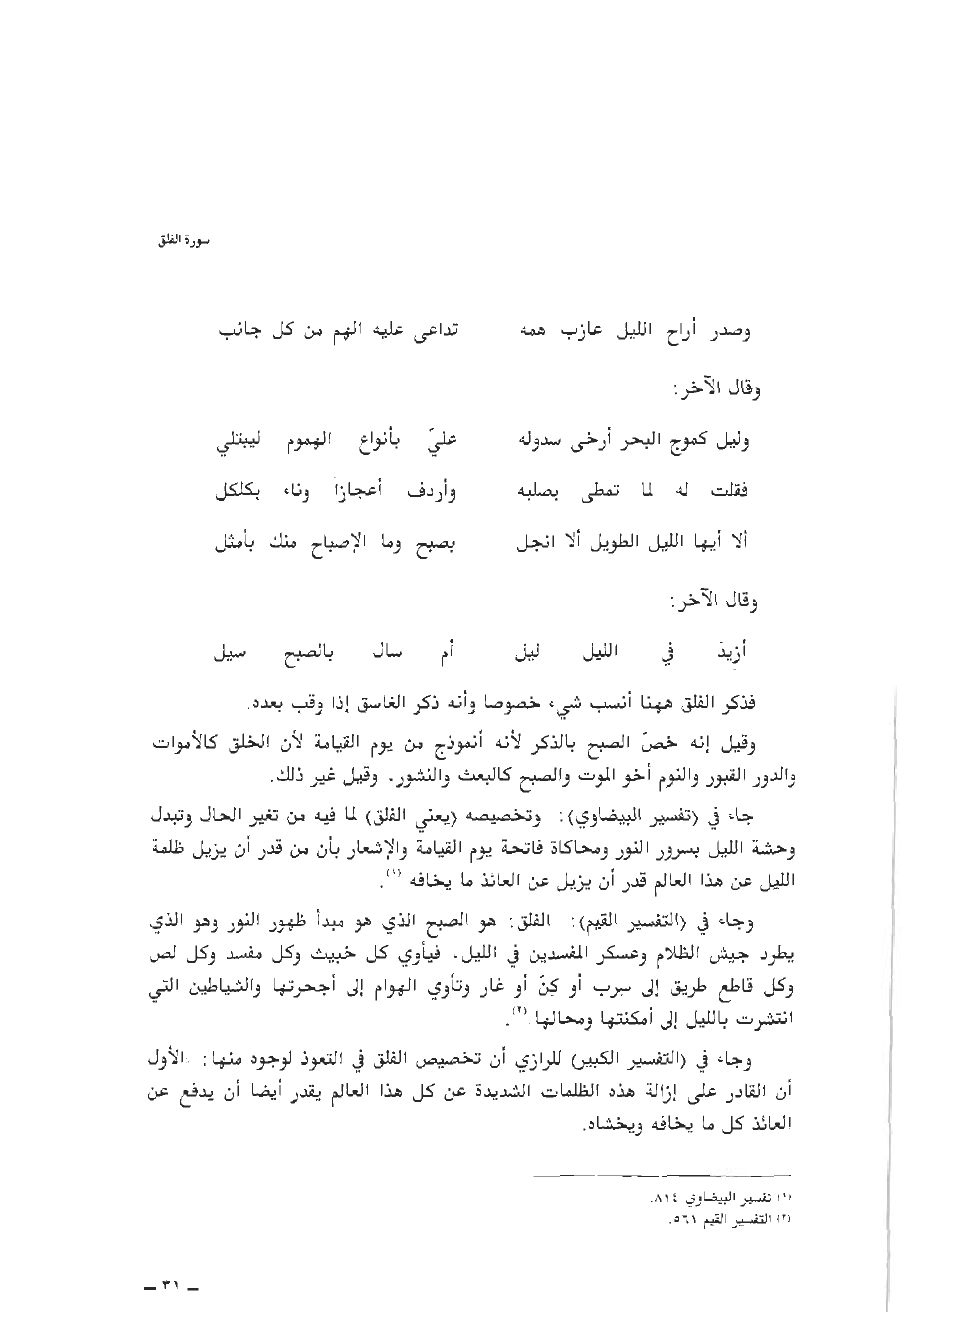 سورة الفلق
وصدر أراح الليل عازب همه تداعى عليه الهم من كل جانب
وقال الآخر:
وليل كموج البحر أرخى سدوله عليّ بأنواع الهموم ليبتلي
فقلت له لما تمطى بصلبه وأردف أعجازاً وناء بكلكل
ألا أيها الليل الطويل ألا انجل بصبح وما الإصباح منك بأمثل
وقال الآخر:
أزيدَ في الليل ليل أم سال بالصبح سيل
فذكر الفلق ههنا أنسب شيء خصوصا وأنه ذكر الغاسق إذا وقب بعده.
وقيل إنه خصّ الصبح بالذكر لأنه أنموذج من يوم القيامة لأن الخلق كالأموات
والدور القبور والنوم أخو الموت والصبح كالبعث والنشور. وقيل غير ذلك.
جاء في (تفسير البيضاوي): وتخصيصه (يعني الفلق) لما فيه من تغير الحال وتبدل
وحشة الليل بسرور النور ومحاكاة فاتحة يوم القيامة والإشعار بأن من قدر أن يزيل ظلمة
الليل عن هذا العالم قدر أن يزيل عن العائذ ما يخافه (١).
وجاء في (التفسير القيم): الفلق: هو الصبح الذي هو مبدأ ظهور النور وهو الذي
يطرد جيش الظلام وعسكر المفسدين في الليل. فيأوي كل خبيث وكل مفسد وكل لص
وكل قاطع طريق إلى سرب أو كنّ أو غار وتأوي الهوام إلى أجحرتها والشياطين التي
انتشرت بالليل إلى أمكنتها ومحالها (٢).
وجاء في (التفسير الكبير) للرازي أن تخصيص الفلق في التعوذ لوجوه منها: الأول
أن القادر على إزالة هذه الظلمات الشديدة عن كل هذا العالم يقدر أيضا أن يدفع عن
العائذ كل ما يخافه ويخشاه.
(١) تفسير البيضاوي ٨١٤.
(٢) التفسير القيم ٥٦١.
ـ ٣١ ـ